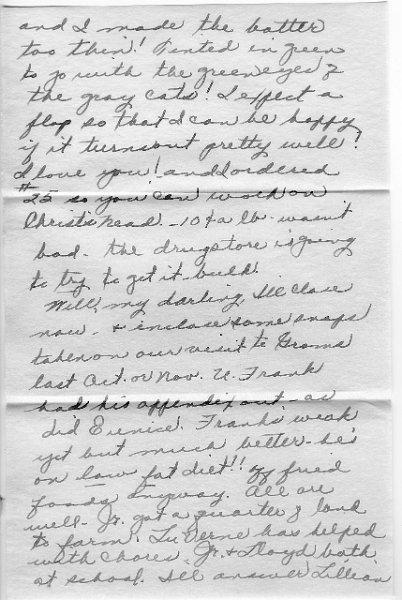 and I made the batter
too thin! Tinted in green
to go with the green eyes of
the gray cats! I expect a
flop so that I can be happy
if it turns out pretty well!
I love you! and I ordered
#25 so you can work on
Christ's head. - 10¢ a lb. wasn't
bad - the drugstore is going
to try to get it - bulk.
Well, my darling, I'll close
now - & inclose some snaps
taken on our visit to Groms
last Oct. or Nov. U. Frank
had his appendix out - as
did Eunice. Frank's weak
yet but much better - he's
on low fat diet!! fried
foods anyway. All are
well - Jr. got a quarter of land
to farm. LuVerne has helped
with chores. Jr. & Lloyd both
at school. I'll answer Lillian